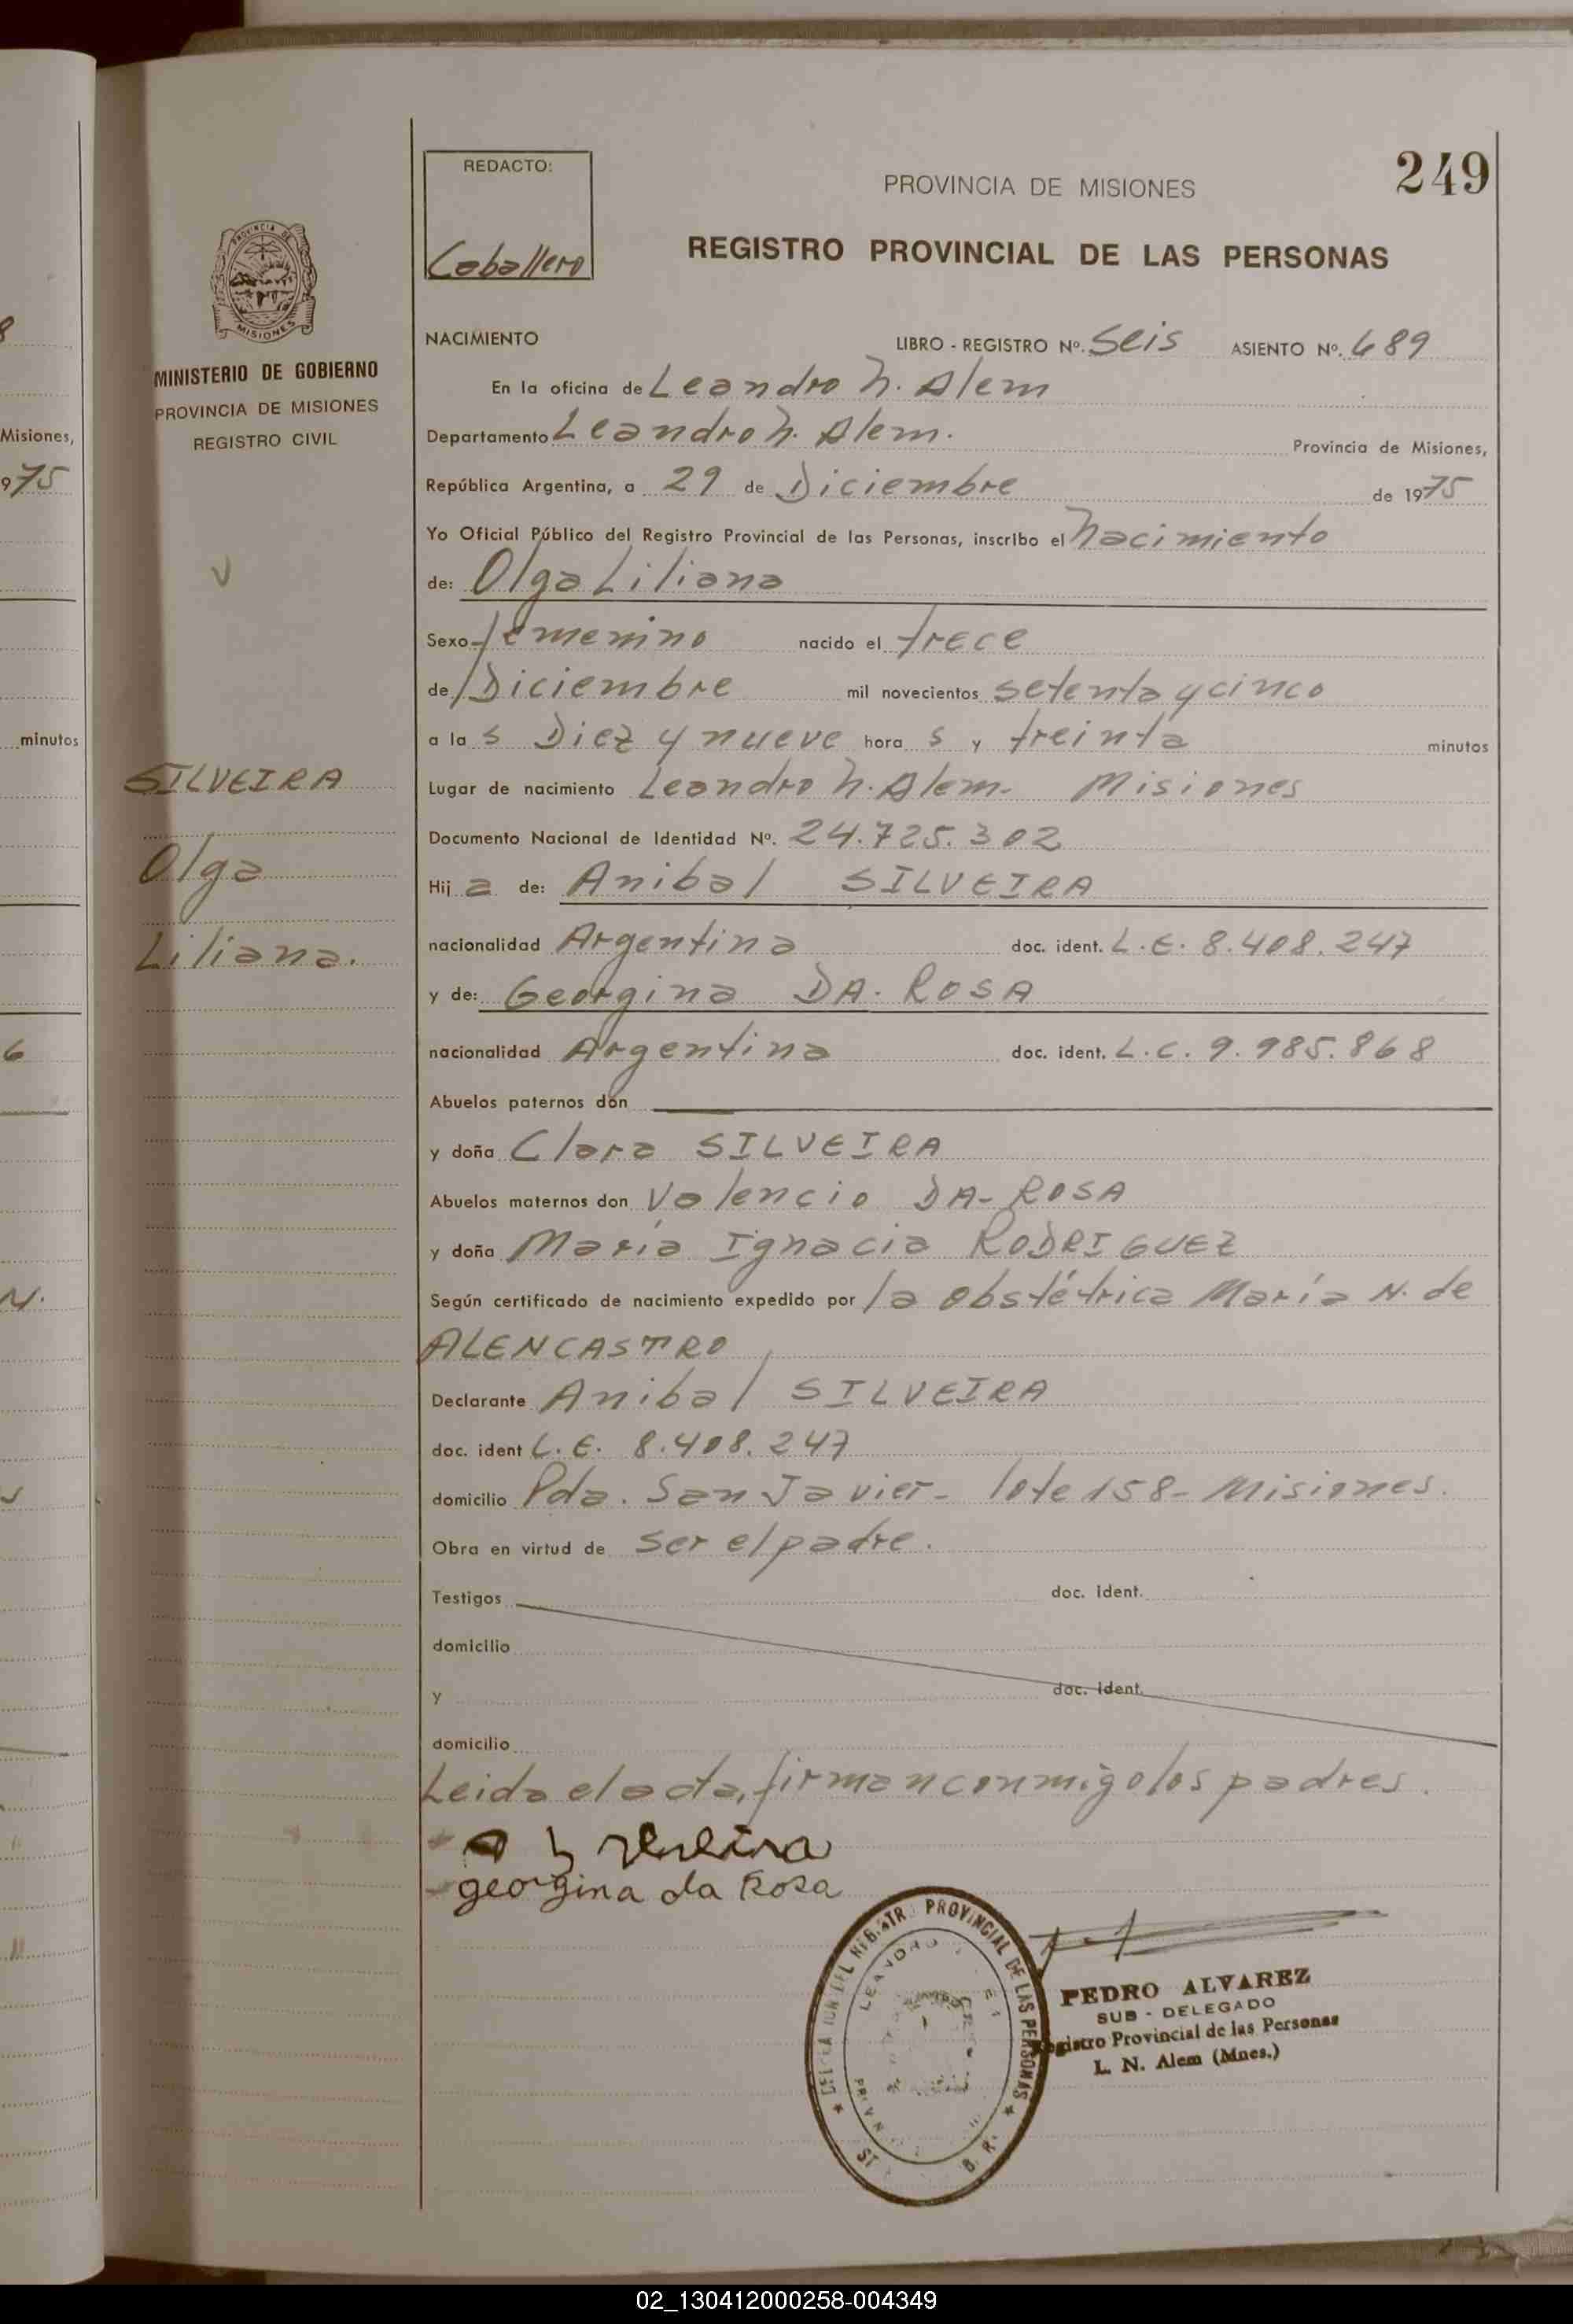 249
REDACTO:
Caballero
PROVINCIA DE MISIONES
REGISTRO PROVINCIAL DE LAS PERSONAS
PROVINCIA DE
MISIONES
MINISTERIO DE GOBIERNO
PROVINCIA DE MISIONES
REGISTRO CIVIL
SILVEIRA
Olga
Liliana.
NACIMIENTO LIBRO - REGISTRO Nº. Seis ASIENTO Nº. 689
En la oficina de Leandro N. Alem
Departamento Leandro N. Alem. Provincia de Misiones,
República Argentina, a 29 de Diciembre de 1975
Yo Oficial Público del Registro Provincial de las Personas, inscribo el Nacimiento
de: Olga Liliana
Sexo femenino nacido el trece
de Diciembre mil novecientos setenta y cinco
a la s Diez y nueve hora s y treinta minutos
Lugar de nacimiento Leandro N. Alem. Misiones
Documento Nacional de Identidad Nº. 24.725.302
Hij a de: Anibal SILVEIRA
nacionalidad Argentina doc. ident. L.E. 8.408.247
y de: Georgina DA. ROSA
nacionalidad Argentina doc. ident. L.C. 9.985.868
Abuelos paternos don
y doña Clara SILVEIRA
Abuelos maternos don Valencio DA-ROSA
y doña María Ignacia RODRIGUEZ
Según certificado de nacimiento expedido por la obstétrica María N. de
ALENCASTRO
Declarante Anibal SILVEIRA
doc. ident L.E. 8.408.247
domicilio Pda. San Javier- lote 158- Misiones.
Obra en virtud de ser el padre.
Testigos doc. ident.
domicilio
y doc. ident.
domicilio
Leida el acta, firman conmigo los padres.
georgina da Rosa
PROVINCIAL DE LAS PERSONAS
PEDRO ALVAREZ
SUB - DELEGADO
Registro Provincial de las Personas
L. N. Alem (Mnes.)
Misiones,
975
minutos
6
N.
02_130412000258-004349